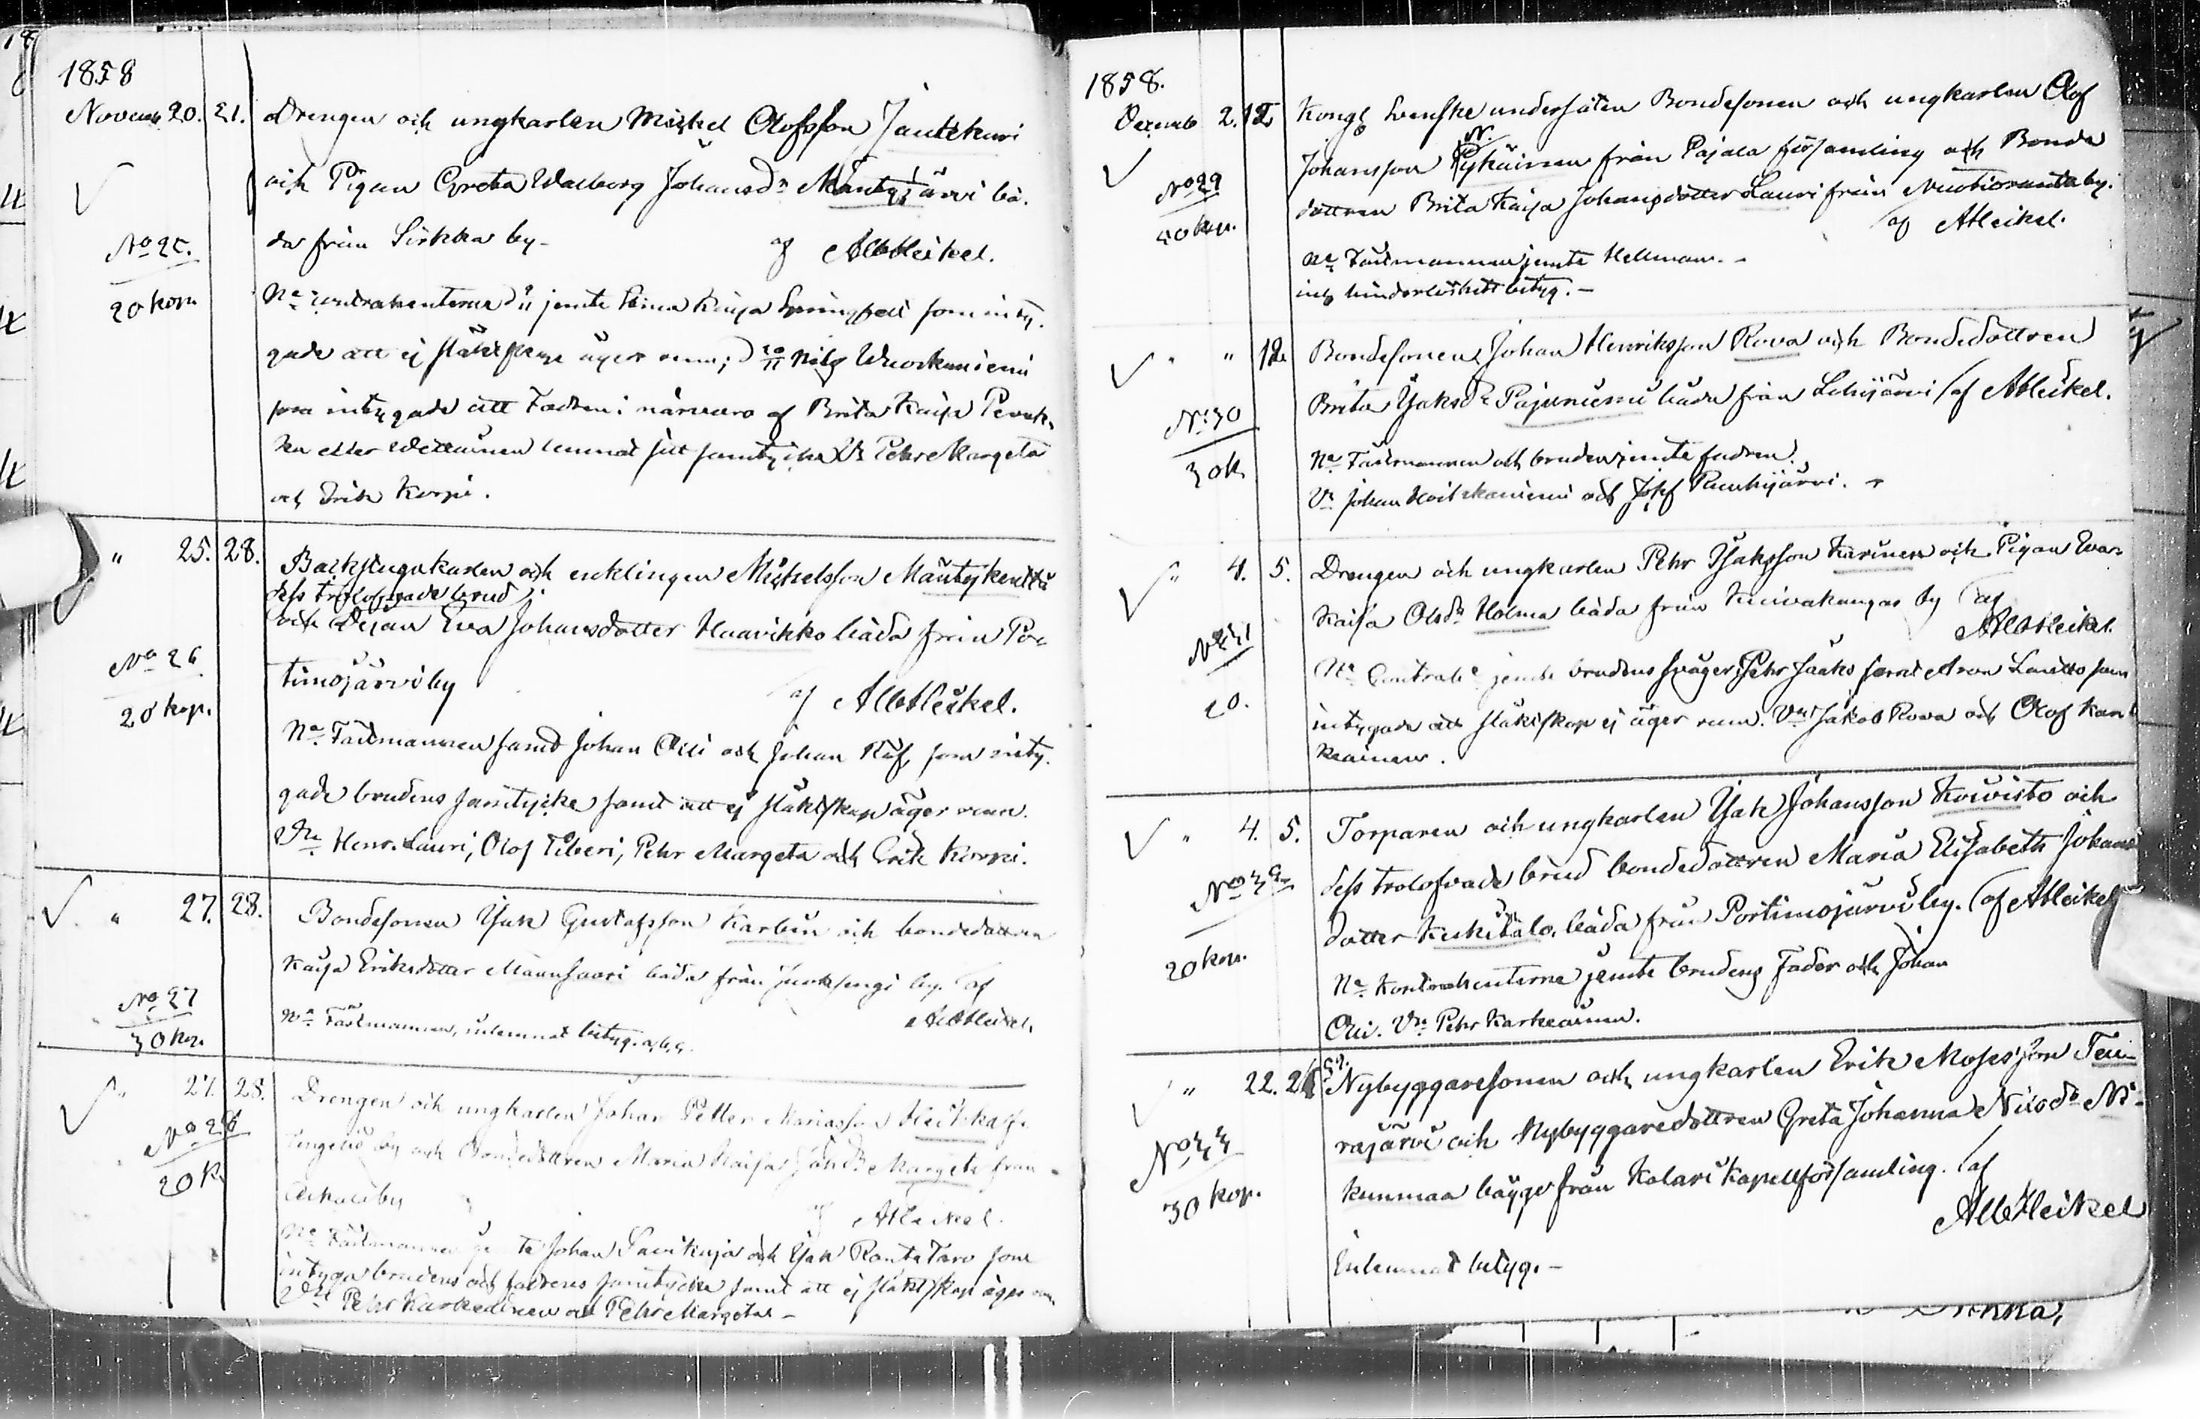 1858
Novemb 20. 21. Drengen och ungkarlen Mickel Olofsson Jautikuri
och Pigan Greta Walborg Johansdr Mäntyjärvi bå-
da från Sirkka by - af Alb Heikel.
No 25.
20 kop.
Ne contrahenterne jemte Kaisa som inty-
gade att ej slägtskap äger rum; Nils Wuorkaniemi
som intygade att Fadren i närvaro af Brita Kaisa
eller lemnat sitt samtycke Vn Pehr Margeta
och Erik Korpi.
" 25. 28. Backstugukarlen och enklingen Michelsson Mäntykenttä
dess trolofvade brud
och Dejan Eva Johansdotter Haavikko båda från Por-
timojärvi by af Alb Heikel.
No 26
20 kop.
Ne. Fästmannen samt Johan Olli och Johan Räf, som inty-
gade brudens samtycke samt att ej slägtskap äger rum.
Vn. Henr. Lauri, Olof Tiberi, Pehr Margeta och Erik Korpi.
" 27. 28. Bondesonen Isak Gustafsson Karbin och bondedottren
Kaisa Eriksdotter Maunsaari båda från Juoksengi by. af
Alb Heikel.
No 27
30 kop.
Ne Fästmannen, inlemnat betyg. a, b, c.
" 27. 28. Drengen och ungkarlen Johan Petter Mariasson
by och Bondedottren Maria Kaisa Johsdr Margeta från
by af Alb Heikel.
No 28
20 k.
Ne Fästmannen jemte Johan och Isak Rantataro som
intyga brudens och fadrens samtycke samt att ej slägtskap äger rum
Vne Pehr Karkeainen och Pehr Margeta -
1858.
Decemb 2. 12 Kongl Svenske undersåten Bondesonen och ungkarlen Olof
Johansson Nykäinen från Pajala församling och Bonde
dottren Brita Kaisa Johansdotter Lauri från Nuotioranta by.
af A Heikel.
No 29
40 kop.
Ne Fästmannen jemte Hellman. -
inl. hinderlöshets betyg. -
" " 12 Bondesonen Johan Henriksson Rova och Bondedottren
Brita Isaksdr Pajuniemi båda från Lohijärvi af Alb Heikel.
No 30
30 k
Ne Fästmannen och bruden jemte fadren.
Vn Johan och Josef Ruuhijärvi.
" 4. 5. Drengen och ungkarlen Pehr Isaksson Karinen och Pigan Eva
Kaisa Olsdr Holma båda från Kuivakangas by af
Alb Heikel.
No 31
20.
Ne Contrahe jemte brudens svåger Pehr Jaako samt Aron som
intygade att slägtskap ej äger rum. Vne Jakob Rova och Olof Kar-
keainen.
" 4. 5. Torparen och ungkarlen Isak Johansson Koivisto och
dess trolofvade brud bondedottren Maria Elisabeth Johans
dotter Keskitalo, båda från Portimojärvi by. af Alb Heikel
No 32
20 kop.
Ne. Kontrahenterne jemte brudens Fader och Johan
Olli. Vn. Pehr Karkeainen.
" 22. 2 Nybyggaresonen och ungkarlen Erik Mosesson Teu-
rajärvi och Nybyggaredottren Greta Johanna Nilsdr Ni-
kunmaa bägge från Kolari Kapellförsamling. af
Alb Heikel
No 33
30 kop.
Inlemnat betyg. -